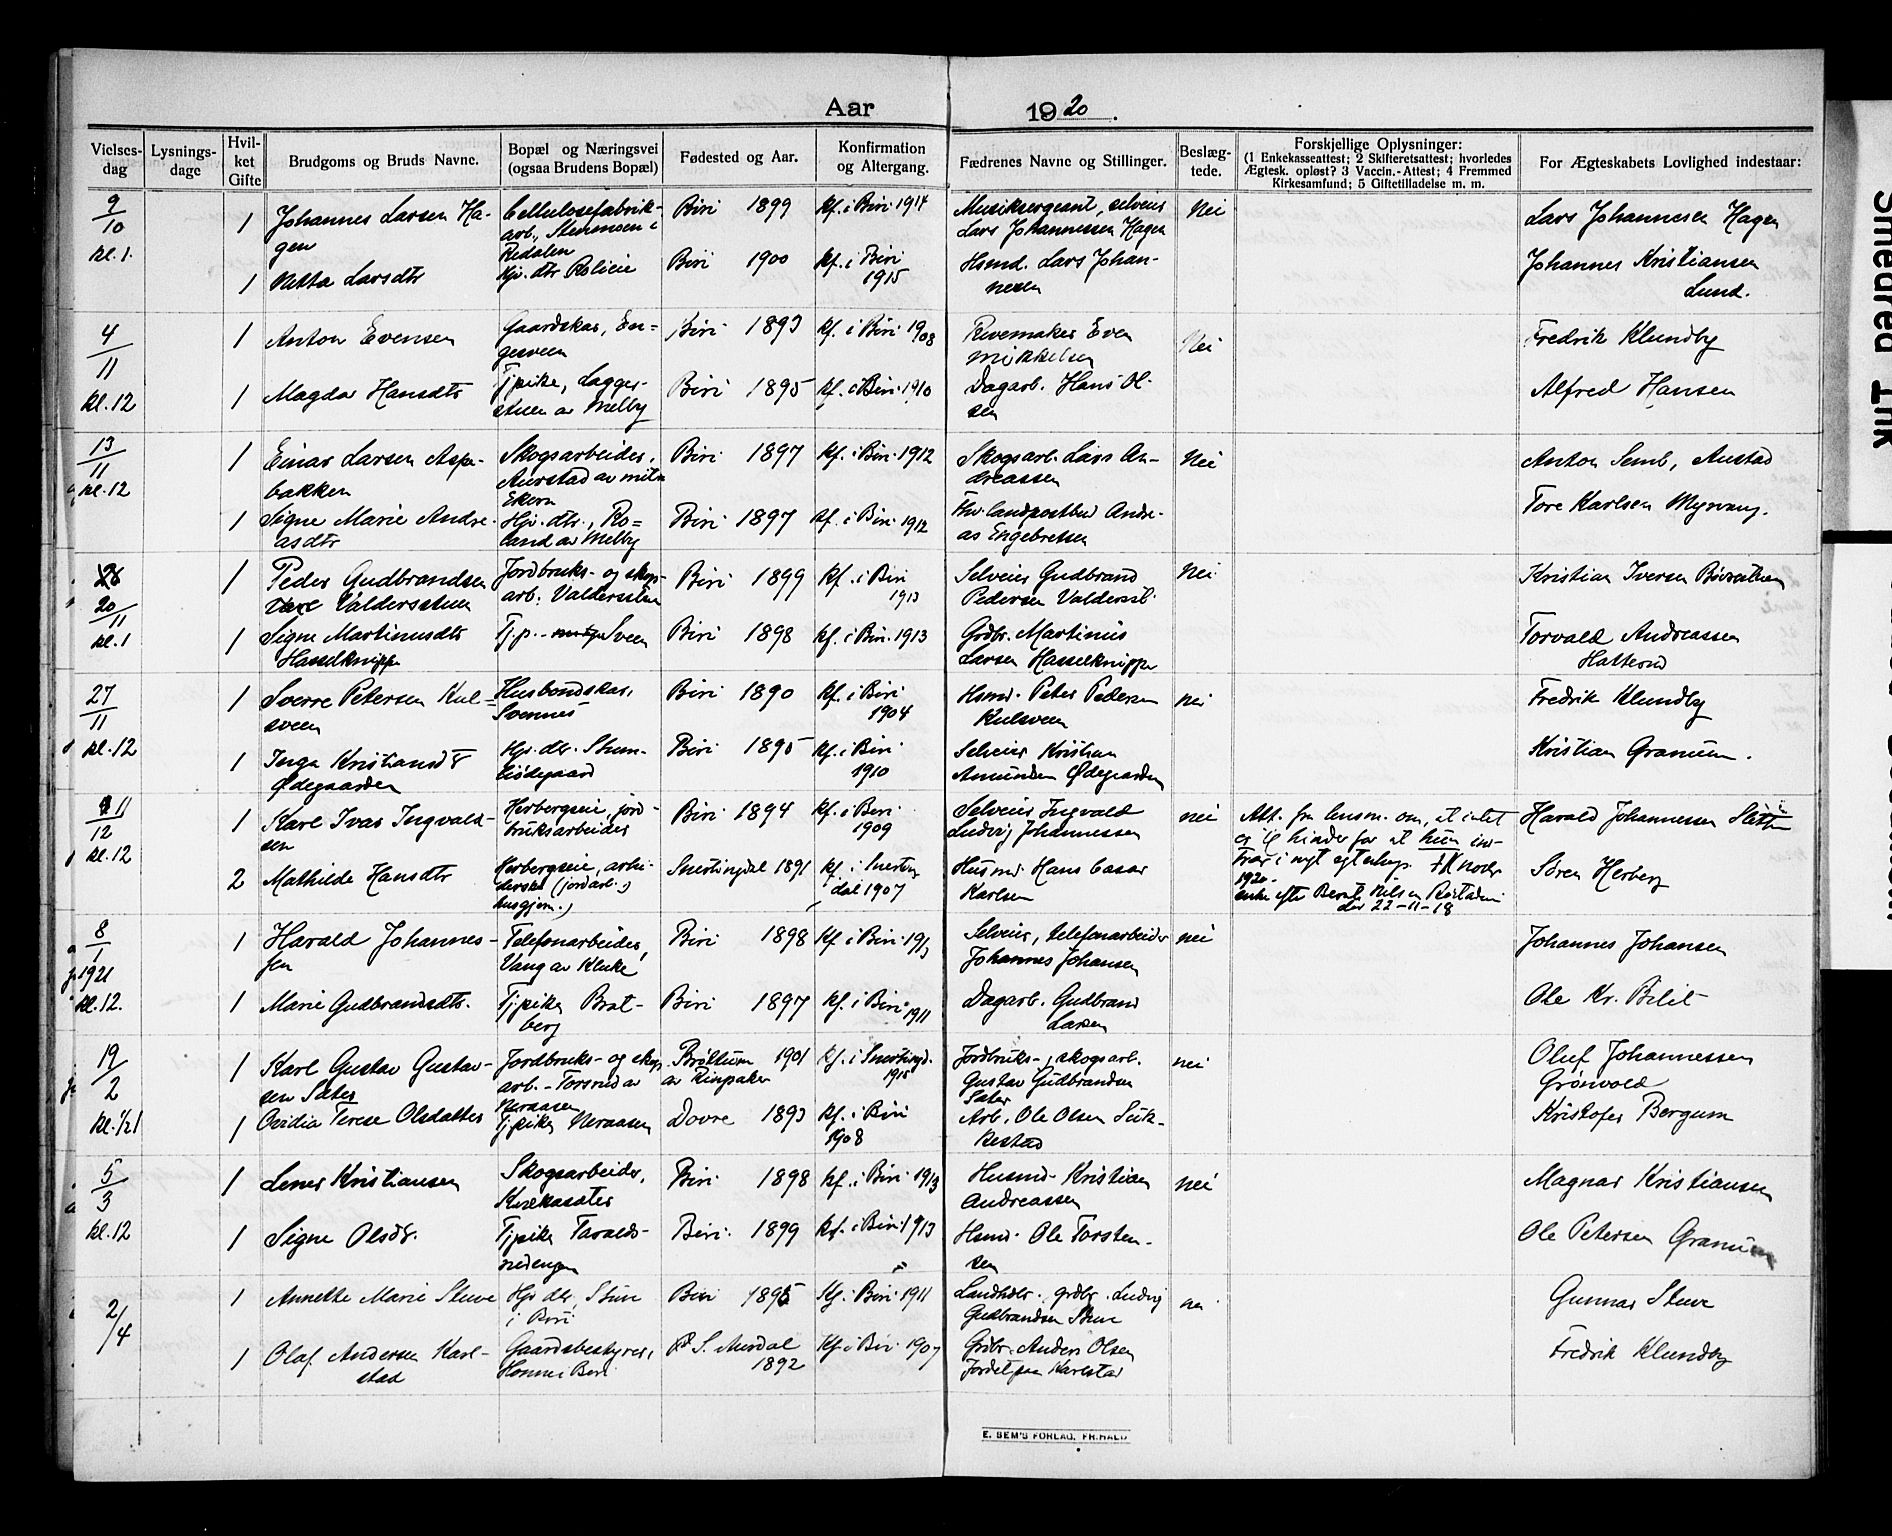 Aar 1920.
Vielses-dag
Lysnings-dage
Hvil-ket Gifte
Brudgoms og Bruds Navne.
Bopæl og Næringsvei (ogsaa Brudens Bopæl)
Fødested og Aar.
Konfirmation og Altergang.
Fædrenes Navne og Stillinger.
Beslæg-tede.
Forskjellige Oplysninger:
(1 Enkekasseattest; 2 Skifteretsattest; hvorledes
Ægtesk. opløst? 3 Vaccin.-Attest; 4 Fremmed
Kirkesamfund; 5 Giftetilladelse m. m.
For Ægteskabets Lovlighed indestaar:
9/10 kl. 1.
1 Johannes Larsen Ha-
gen
Cellulosefabrik-
arb., Stenmoen i
Redalen
Biri 1899
kf. i Biri 1914
Musiksergeant, selveier
Lars Johannessen Hagen
Nei
Lars Johannesen Hagen
1 Larsdtr
Hjv. dtr.
Biri 1900
kf. i Biri
1915
Hsmd. Lars Johan-
nesen
Johannes Kristiansen
Lund.
4/11 kl. 12
1 Anton Evensen
Gaardskar, En-
gesveen
Biri 1893
kf. i Biri 1908
Even
Mikkelsen
Nei
Fredrik Klundby
1 Magda Hansdtr
Tjpike, Lagger-
stuen av Melby
Biri 1895
kf. i Biri 1910
Dagarb. Hans Ol-
sen
Alfred Hansen
13/11 kl. 12
1 Einar Larsen Aspe-
bakken
Skogsarbeider,
Aurstad av
Ekern
Biri 1897
kf. i Biri 1912
Skogsarb. Lars An-
dreassen
Nei
Anton Semb, Austad
1 Signe Marie Andre-
asdtr
Hjv. dtr., Ro-
land av Melby
Biri 1897
kf. i Biri 1912
Fhv. landpostbud Andre-
as Engebretsen
Tore Karlsen Myrvang.
20/11 kl. 1
1 Peder Gudbrandsen
Valdersstuen
Jordbruks- og skogs-
arb. Valdersstuen
Biri 1899
kf. i Biri
1913
Selveier Gudbrand
Pedersen Valdersst.
Nei
Kristian Iversen
1 Signe Martinusdtr
Hasselknippe
Tj.p. Sveen
Biri 1898
kf. i Biri 1913
Grdbr. Martinus
Larsen Hasselknippe
Torvald Andreassen
Hatterud
27/11 kl. 12
1 Sverre Petersen Kul-
sveen
Husbondskar,
Svennes
Biri 1890
kf. i Biri
1904
Hsmd. Peter Pedersen
Kulsveen
nei
Fredrik Klundby
1 Inga Kristiansdtr
Ødegaarden
Hjv. dtr.
Biri 1895
kf. i Biri
1910
Selveier Kristian
Amundsen Ødegaarden
Kristian Granum.
11/12 kl. 12
1 Karl Ivar Ingvald-
sen
Herbergseie, jord-
bruksarbeider
Biri 1894
kf. i Biri
1909
Selveier Ingvald
Ludvig Johannessen
nei
Att. fra lensm. om, at intet
er til hinder for at hun ind-
træ i nyt egteskap.
1920.
enke efter Bernt Nilsen
22-11-18
Harald Johannessen
2 Mathilde Hansdtr
Herbergseie, arbei-
derske (jordarb.,
husgjern.)
Snertingdal 1891
kf. i Snerting-
dal 1907
Husmd. Hans Casar
Karlsen
Søren Herberg
8/1 1921 kl. 12.
1 Harald Johannes-
sen
Telefonarbeider,
Vang av
Biri 1898
kf i Biri 1913
Selveier, telefonarbeider
Johannes Johansen
nei
Johannes Johansen
1 Marie Gudbrandsdtr.
Tjpike, Brat-
berg
Biri 1897
kf. i Biri 1911
Dagarb. Gudbrand
Larsen
Ole Kr. Bilit
19/2 kl. 1/2 1
1 Karl Gustav Gustav-
sen Sater
Jordbruks- og skogs
arb. Torsrud av
Neraasen
Brøttum 1901
av Ringsaker
kf. i Snertingd.
1915
Jordbruks-, skogsarb.
Gustav Gudbrandsen
Sater
nei
Oluf Johannessen
Grønvold
1 Ovidia Terese Olsdatter
Tjpike, Neraasen
Dovre 1893
kf. i Biri
1908
Arb. Ole Olsen
Kristofer Bergum
5/3 kl. 12
1 Kristiansen
Skogsarbeider,
Kvækasater
Biri 1898
kf. i Biri 1913
Husmd. Kristian
Andreassen
nei
Magnar Kristiansen
1 Signe Olsdtr.
Tjpike
Biri. 1899
kf. i Biri 1913
Hsmd. Ole Torsten-
sen
Ole Petersen Granum
2/4
1 Annette Marie Stuve
Hjv dtr, Stuve
i Biri
Biri 1895
Kf. i Biri 1911
Landhdlr. grdbr. Ludvig
Gudbrandsen Stuve
nei
Gunnar Stuve
1 Olaf Andersen Karl-
stad
Gaardsbestyrer,
Honne i Biri
S. Aurdal
1892
Kf. i Biri 1907
Grdbr. Anders Olsen
Karlstad
Fredrik Klundby
E. SEM'S FORLAG. FR.HALD
Smedred Ink